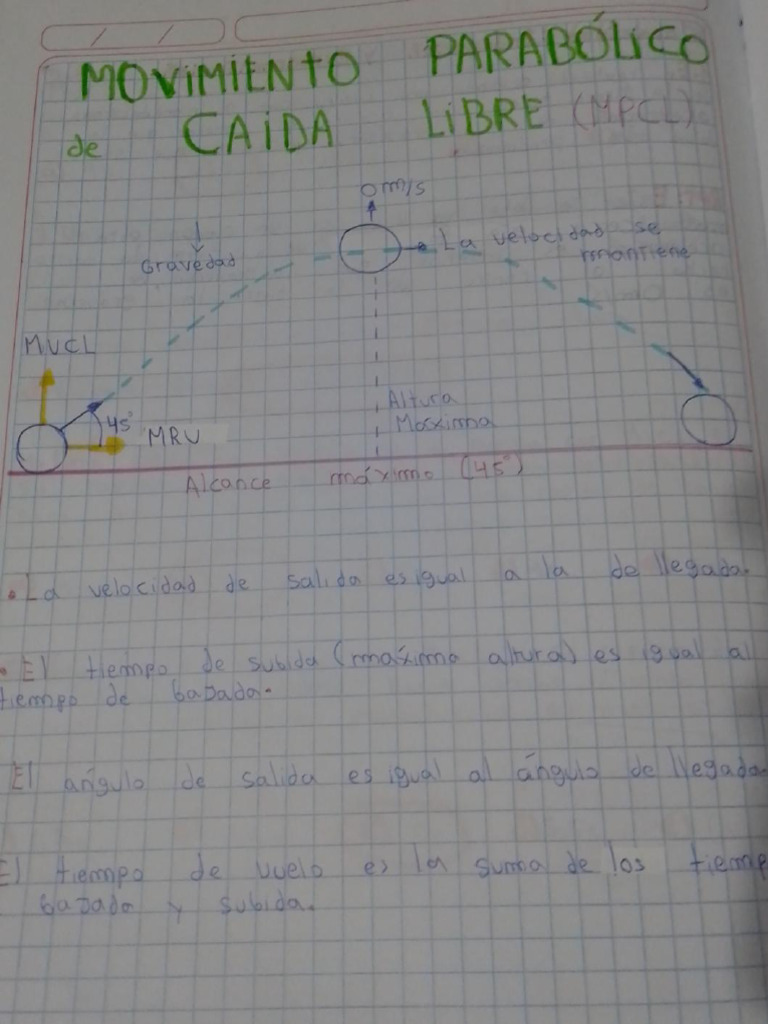 MOVIMIENTO PARABÓLICO
de CAIDA LIBRE (MPCL)
0 m/s
Gravedad
La velocidad se
mantiene
MVCL
45°
MRU
Altura
Máxima
Alcance máximo (45°)
• La velocidad de salida es igual a la de llegada.
• El tiempo de subida (máxima altura) es igual al
tiempo de bajada.
El ángulo de salida es igual al ángulo de llegada
El tiempo de vuelo es la suma de los tiemp
bajada y subida.